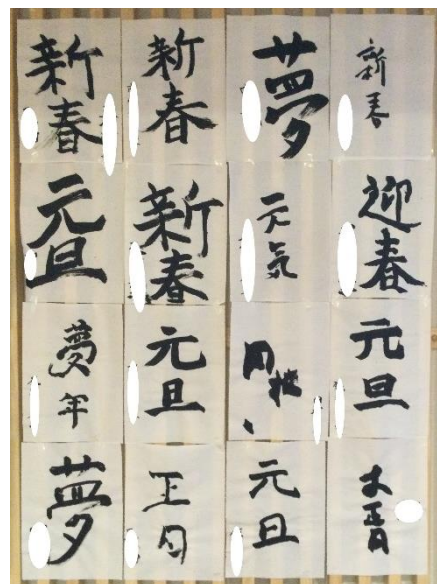 新春
新春
夢
新春
元旦
新春
元気
迎春
夢
年
元旦
元旦
夢
正月
元旦